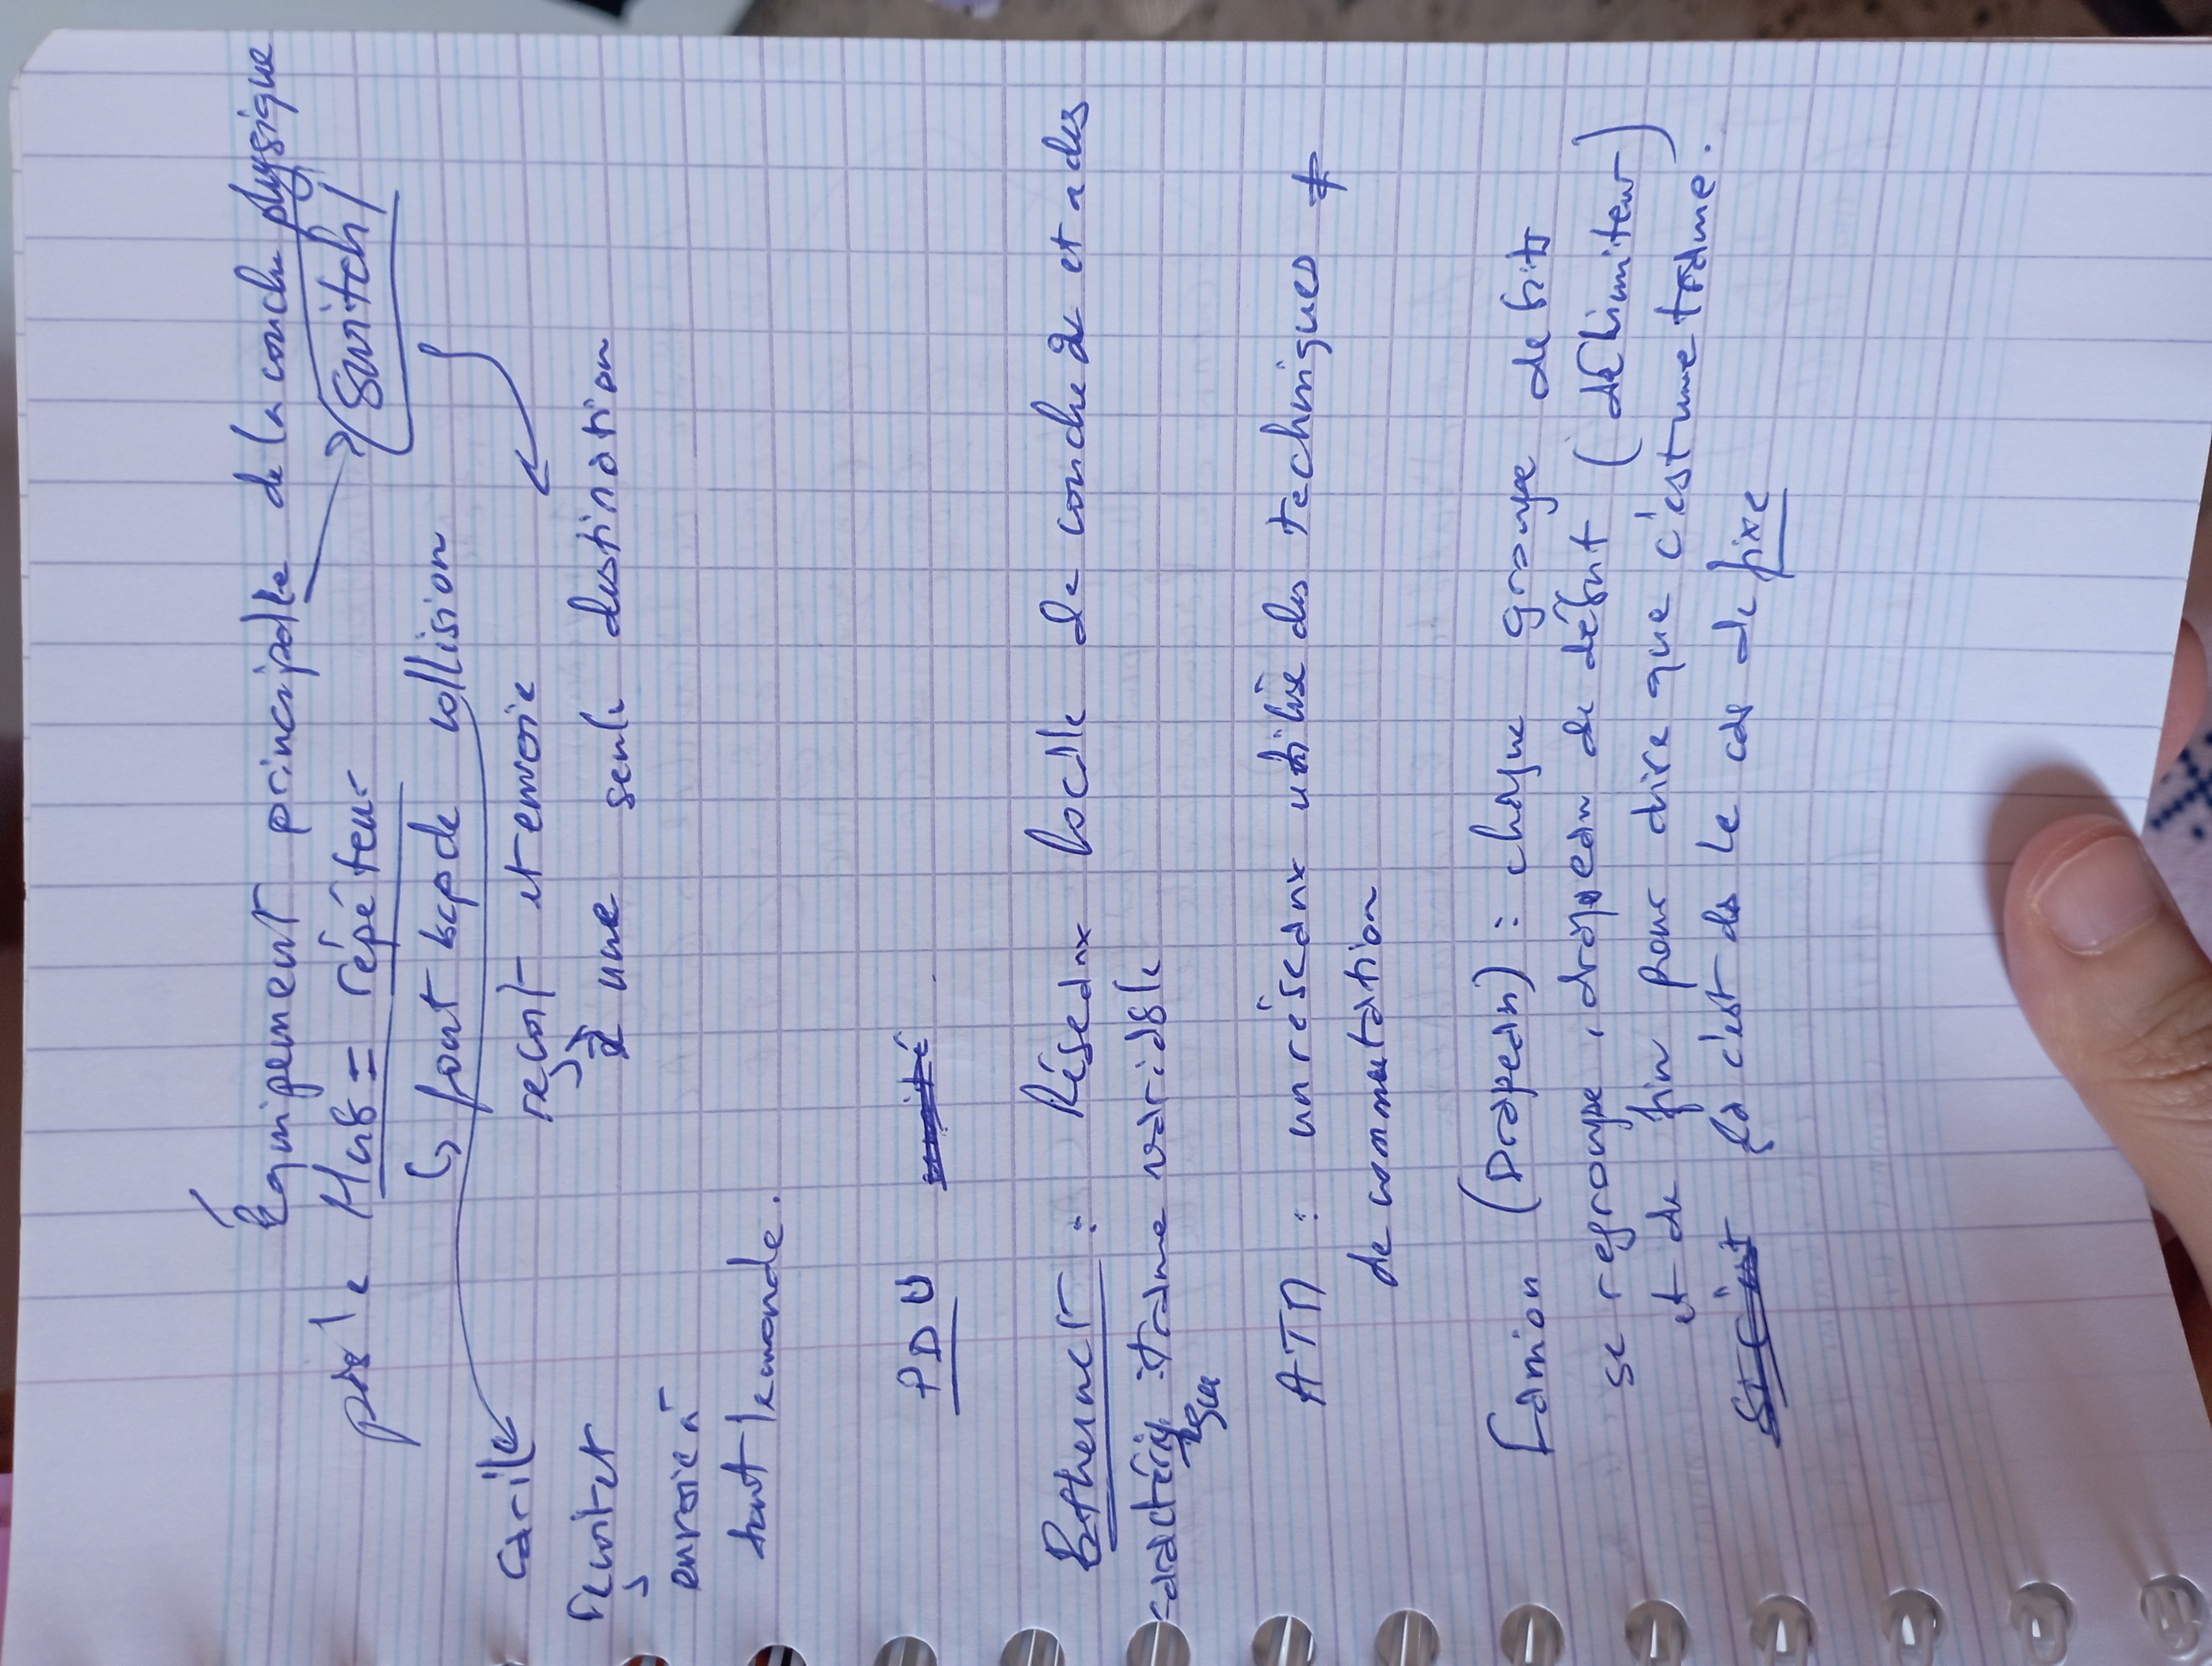 Équipement principalle de la couche physique
pas le Hub = répéteur
switch
↳ font bcp de collision
car il
reçoit et envoie
reçoit et
à une seule destination
envoie à
tout le monde.
PDU
Ethernet : Réseaux locale de couche 2 et a des
caractéris tique : trame variable
ATM : un réseaux utilise des techniques ≠
de commutation
Famion (Drapeau) : chaque groupe de bits
se regroupe, drapeau de début (délimiteur)
et de fin pour dire que c'est une trame.
ça c'est ds le cas de fixe